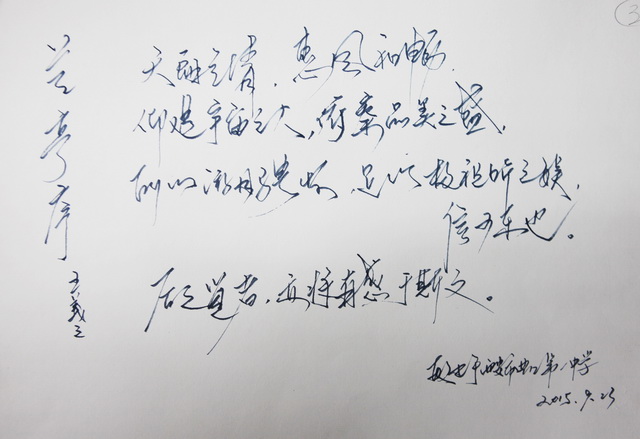 兰亭序
王羲之
天朗气清,惠风和畅.
仰观宇宙之大,俯察品类之盛,
所以游目骋怀,足以极视听之娱,
信可乐也。
后之览者,亦将有感于斯文。
第一中学
2015.9.23
③